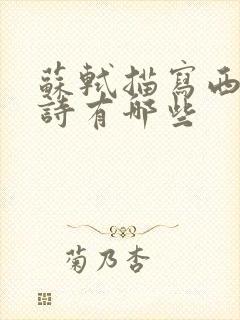 蘇軾描寫西
詩有哪些
菊乃杏